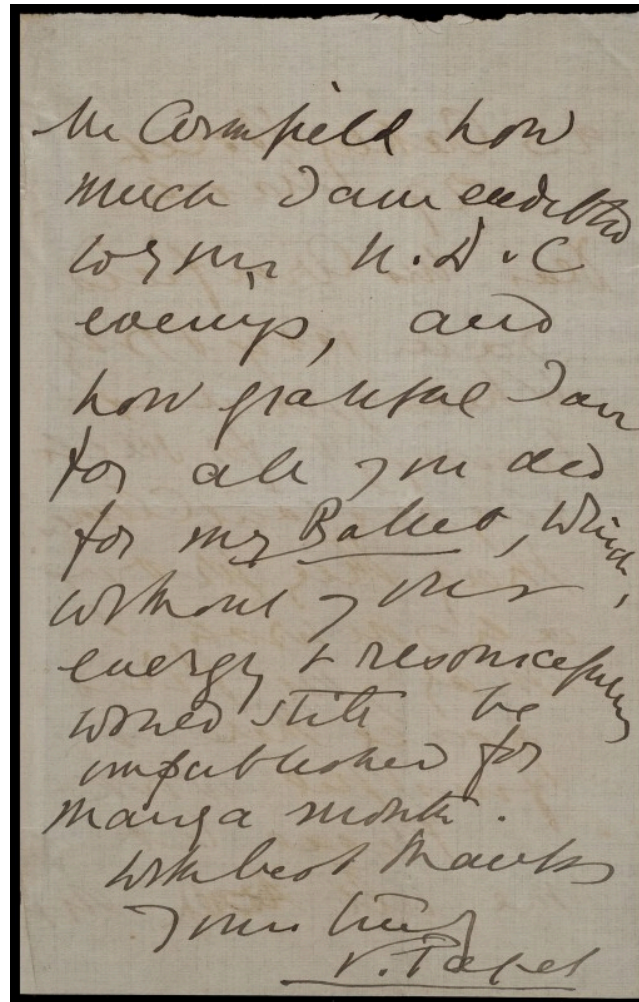 Mr Cornfield how
much I am endebted
to you N.D.C
evenings, and
how grateful I am
for all you did
for my Ballet, which,
without your
energy & resourcefulness
would still be
unpublished for
many a month.
With best thanks
yours truly